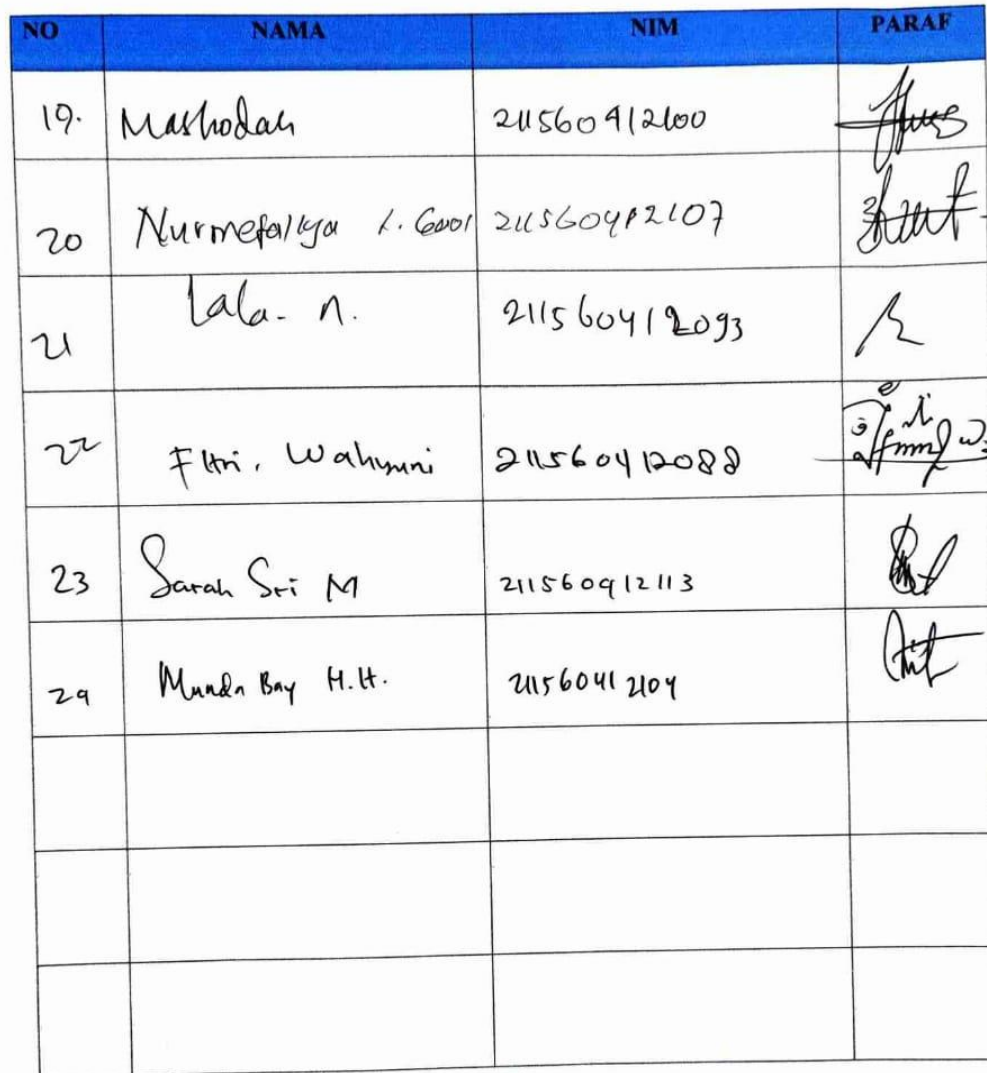 NO NAMA NIM PARAF
19. Mashodah 211560412100
20 Nurmefaliya 211560412107
21 Lala. N. 211560412093
22 Fitri. Wahyuni 211560412088
23 Sarah Sri M 211560412113
24 Munda Bay H.H. 211560412104